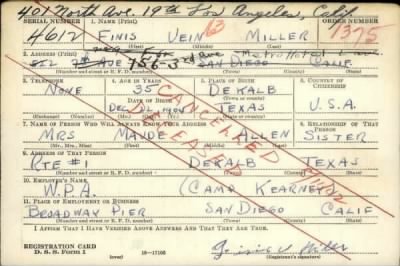 401 North Ave. 19th Los Angeles, Calif.
SERIAL NUMBER 1. NAME (Print) ORDER NUMBER
4612 FINIS VEIN 63 MILLER 1375
(First) (Middle) (Last)
2. ADDRESS (Print) Metro Hotel
7th AVE 756-3rd Ave SAN DIEGO CALIF.
(Number and street or R. F. D. number) (Town) (County) (State)
3. TELEPHONE 4. AGE IN YEARS 5. PLACE OF BIRTH 6. COUNTRY OF CITIZENSHIP
NONE 35 DEKALB
DATE OF BIRTH (Town or county)
DEC TEXAS U.S.A.
(Exchange) (No.) (Mo.) (Day) (Yr.) (State or country)
CANCELLED
7. NAME OF PERSON WHO WILL ALWAYS KNOW YOUR ADDRESS 8. RELATIONSHIP OF THAT PERSON
MRS MAUDE ALLEN SISTER
(Mr., Mrs., Miss) (First) (Middle) (Last)
9. ADDRESS OF THAT PERSON
RTE #1 DEKALB TEXAS
(Number and street or R. F. D. number) (Town) (County) (State)
10. EMPLOYER'S NAME
W.P.A. (CAMP KEARNEY
11. PLACE OF EMPLOYMENT OR BUSINESS
BROADWAY PIER SAN DIEGO CALIF
(Number and street or R. F. D. number) (Town) (County) (State)
I AFFIRM THAT I HAVE VERIFIED ABOVE ANSWERS AND THAT THEY ARE TRUE.
REGISTRATION CARD
D. S. S. Form 1 (over) 16-17105 (Registrant's signature)